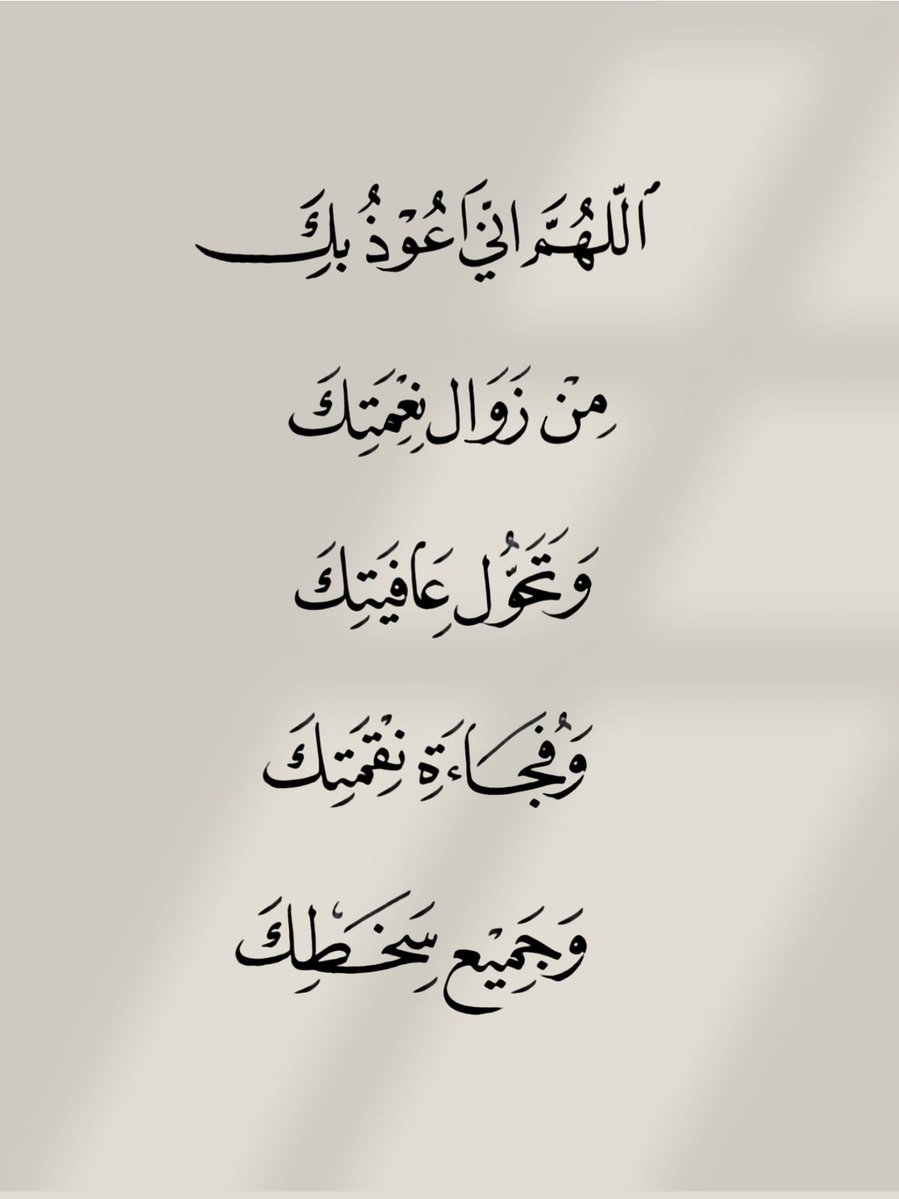 ٱللّٰهُمَّ انِّيَ اَعُوْذُ بِكَ
مِنْ زَوَالِ نِعْمَتِكَ
وَتَحَوُّلِ عَافِيَتِكَ
وَفُجَاءَةِ نِقْمَتِكَ
وَجَمِيْعِ سَخَطِكَ